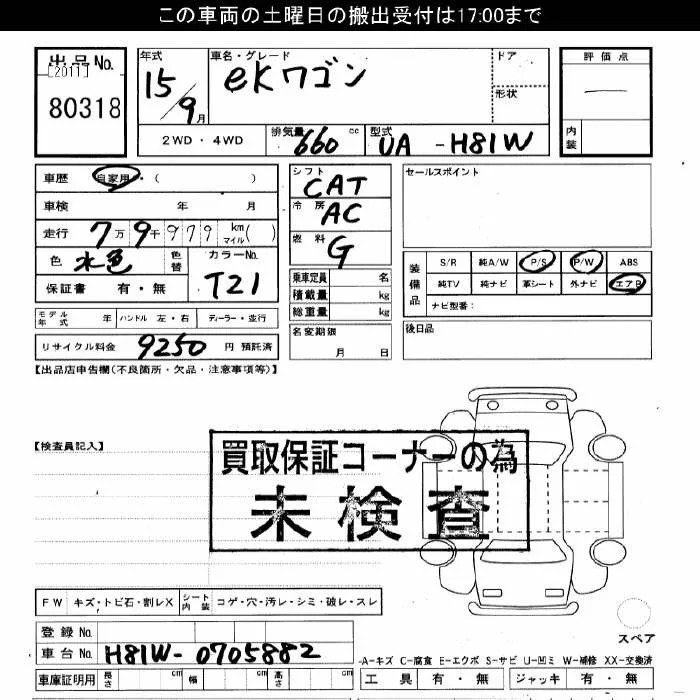 この車両の土曜日の搬出受付は17:00まで
出品No.
[2011]
80318
年式
15/9月
車名・グレード
ekワゴン
ドア
形状
評価点
—
内装
2WD・4WD
排気量 660 cc
型式 UA-H81W
車歴 自家用・( )
車検 年 月
走行 7万9千979 km マイル( )
色 水色 色替 カラーNo. T21
保証書 有・無
シフト CAT
冷房 AC
燃料 G
乗車定員 名
積載量 kg
総重量 kg
名変期限 月 日
セールスポイント
装備品
S/R 純A/W P/S P/W ABS
純TV 純ナビ 革シート 外ナビ エアB
ナビ型番:
後日品
モデル年式 年 ハンドル 左・右 ディーラー・並行
リサイクル料金 9250 円 預託済
【出品店申告欄(不良箇所・欠品・注意事項等)】
【検査員記入】
買取保証コーナーの為
未検査
FW キズ・トビ石・割レX シート内装 コゲ・穴・汚レ・シミ・破レ・スレ
スペア
登録No.
車台No. H81W-0705882
車庫証明用 長さ cm 幅 cm 高さ cm
-A-キズ C-腐食 E-エクボ S-サビ U-凹ミ W-補修 XX-交換済
工具 有・無 ジャッキ 有・無